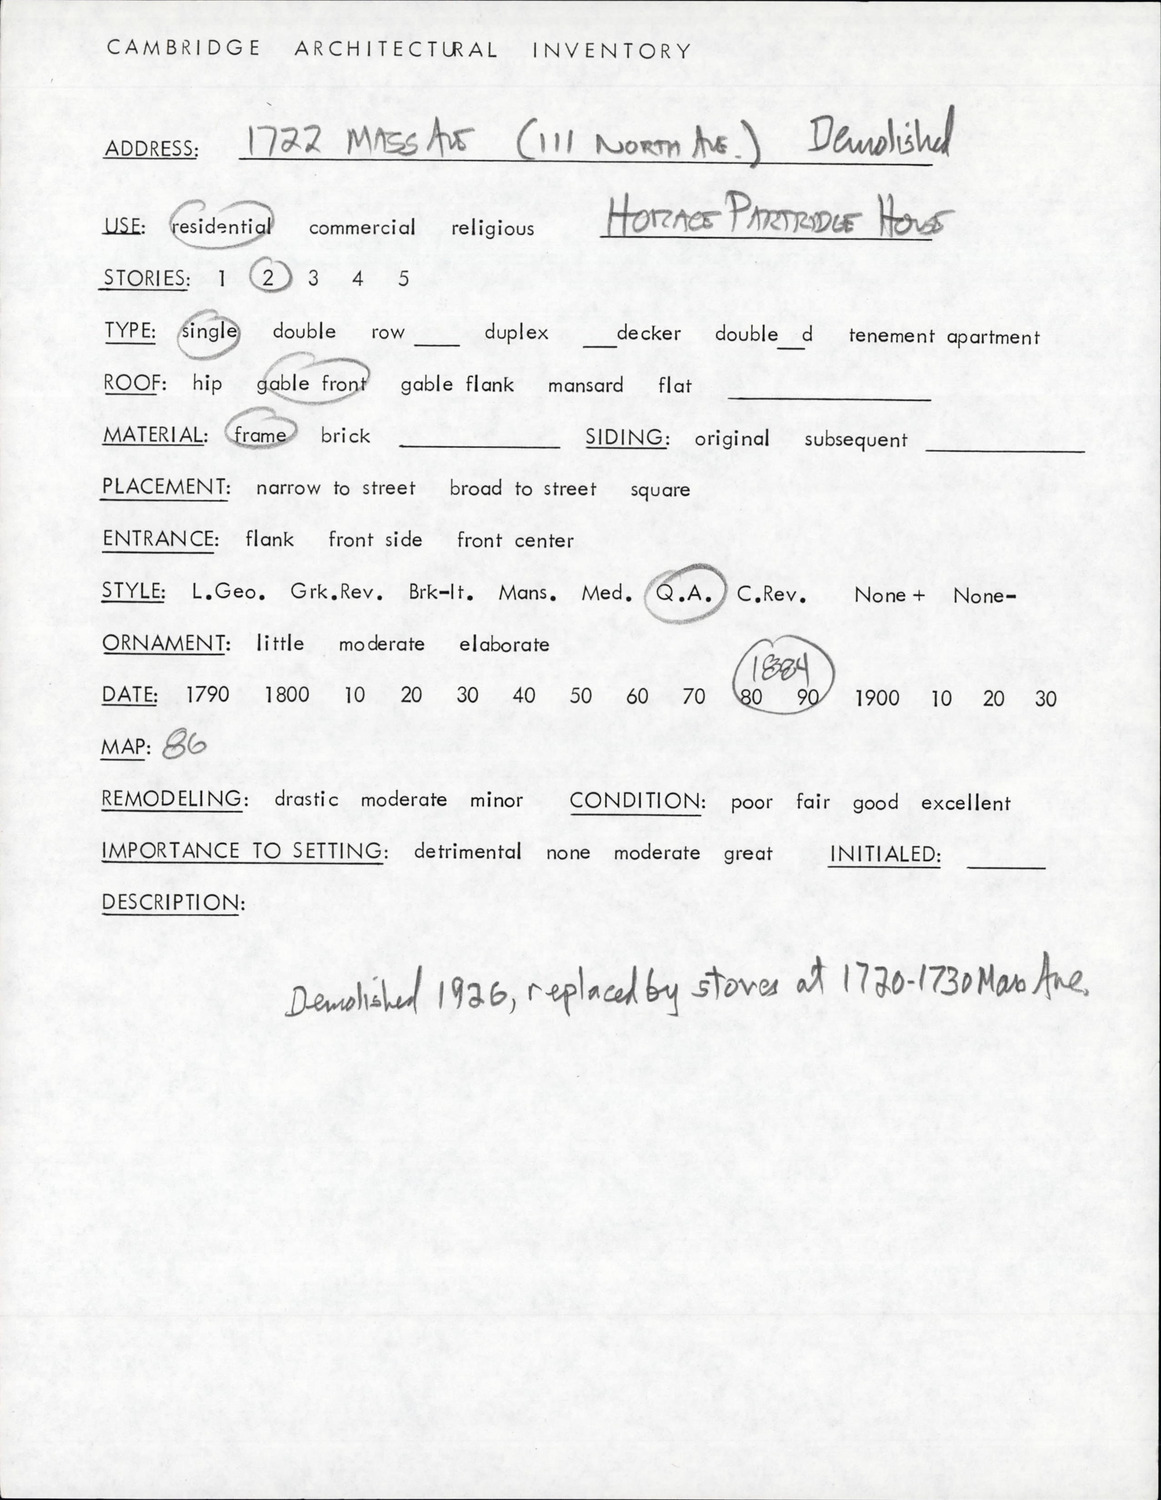 CAMBRIDGE ARCHITECTURAL INVENTORY
ADDRESS: 1722 MASS AVE (111 NORTH AVE.) Demolished
USE: residential commercial religious HORACE PARTRIDGE HOUSE
STORIES: 1 2 3 4 5
TYPE: single double row ___ duplex ___decker double__d tenement apartment
ROOF: hip gable front gable flank mansard flat
MATERIAL: frame brick SIDING: original subsequent
PLACEMENT: narrow to street broad to street square
ENTRANCE: flank front side front center
STYLE: L.Geo. Grk.Rev. Brk-It. Mans. Med. Q.A. C.Rev. None+ None-
ORNAMENT: little moderate elaborate
1884
DATE: 1790 1800 10 20 30 40 50 60 70 80 90 1900 10 20 30
MAP: 86
REMODELING: drastic moderate minor CONDITION: poor fair good excellent
IMPORTANCE TO SETTING: detrimental none moderate great INITIALED:
DESCRIPTION:
Demolished 1926, replaced by stores at 1720-1730 Mass Ave.